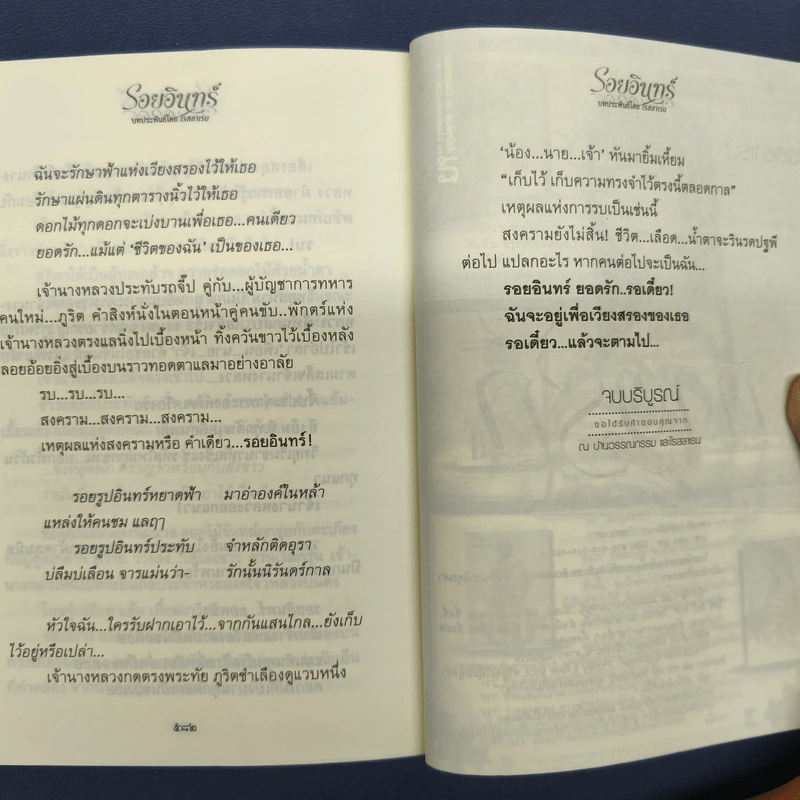 รอยอินทร์
บทประพันธ์โดย โรสลาเรน
ฉันจะรักษาฟ้าแห่งเวียงสรองไว้ให้เธอ
รักษาแผ่นดินทุกตารางนิ้วไว้ให้เธอ
ดอกไม้ทุกดอกจะเบ่งบานเพื่อเธอ...คนเดียว
ยอดรัก...แม้แต่ ‘ชีวิตของฉัน’ เป็นของเธอ...
เจ้านางหลวงประทับรถจี๊ป คู่กับ...ผู้บัญชาการทหาร
คนใหม่...ภูริต คำสิงห์นั่งในตอนหน้าคู่คนขับ..พักตร์แห่ง
เจ้านางหลวงตรงแลนิ่งไปเบื้องหน้า ทิ้งควันขาวไว้เบื้องหลัง
ลอยอ้อยอิ่งสู่เบื้องบนราวทอดตาแลมาอย่างอาลัย
รบ...รบ...รบ...
สงคราม...สงคราม...สงคราม...
เหตุผลแห่งสงครามหรือ คำเดียว...รอยอินทร์!
รอยรูปอินทร์หยาดฟ้า มาอ่าองค์ในหล้า
แหล่งให้คนชม แลฤๅ
รอยรูปอินทร์ประทับ จำหลักติดอุรา
บ่ลืมบ่เลือน จารแม่นว่า- รักนั้นนิรันดร์กาล
หัวใจฉัน...ใครรับฝากเอาไว้...จากกันแสนไกล...ยังเก็บ
ไว้อยู่หรือเปล่า...
เจ้านางหลวงกดตรงพระทัย ภูริตชำเลืองดูแวบหนึ่ง
๕๘๒
รอยอินทร์
บทประพันธ์โดย โรสลาเรน
‘น้อง...นาย...เจ้า’ หันมายิ้มเหี้ยม
“เก็บไว้ เก็บความทรงจำไว้ตรงนี้ตลอดกาล”
เหตุผลแห่งการรบเป็นเช่นนี้
สงครามยังไม่สิ้น! ชีวิต...เลือด...น้ำตาจะรินรดปฐพี
ต่อไป แปลกอะไร หากคนต่อไปจะเป็นฉัน...
รอยอินทร์ ยอดรัก..รอเดี๋ยว!
ฉันจะอยู่เพื่อเวียงสรองของเธอ
รอเดี๋ยว...แล้วจะตามไป...
จบบริบูรณ์
ขอได้รับคำขอบคุณจาก
ณ บ้านวรรณกรรม และโรสลาเรน